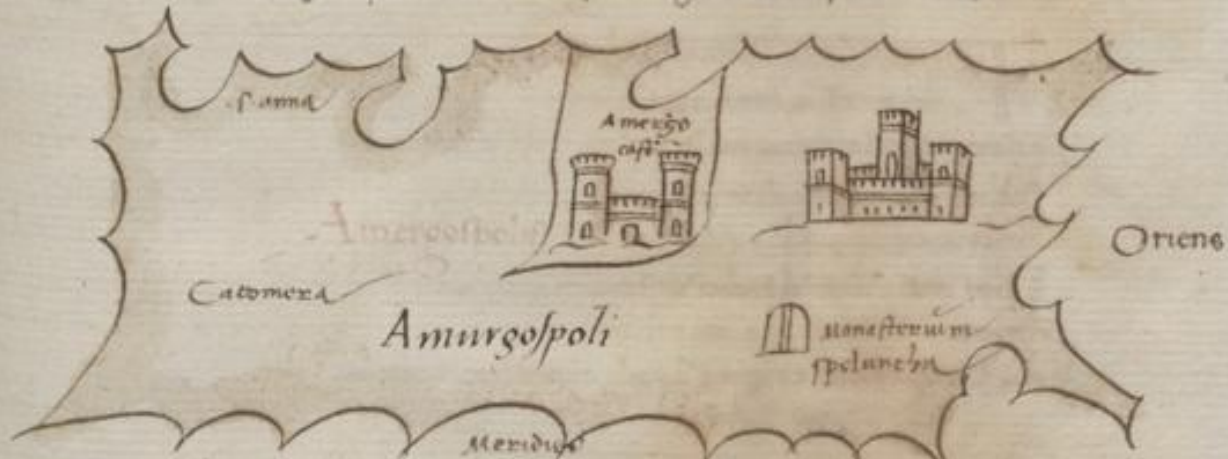 S. anna
Amergo
cast.
Oriens
Catomera
Amurgospoli
Monasterium
speluncha
Meridies